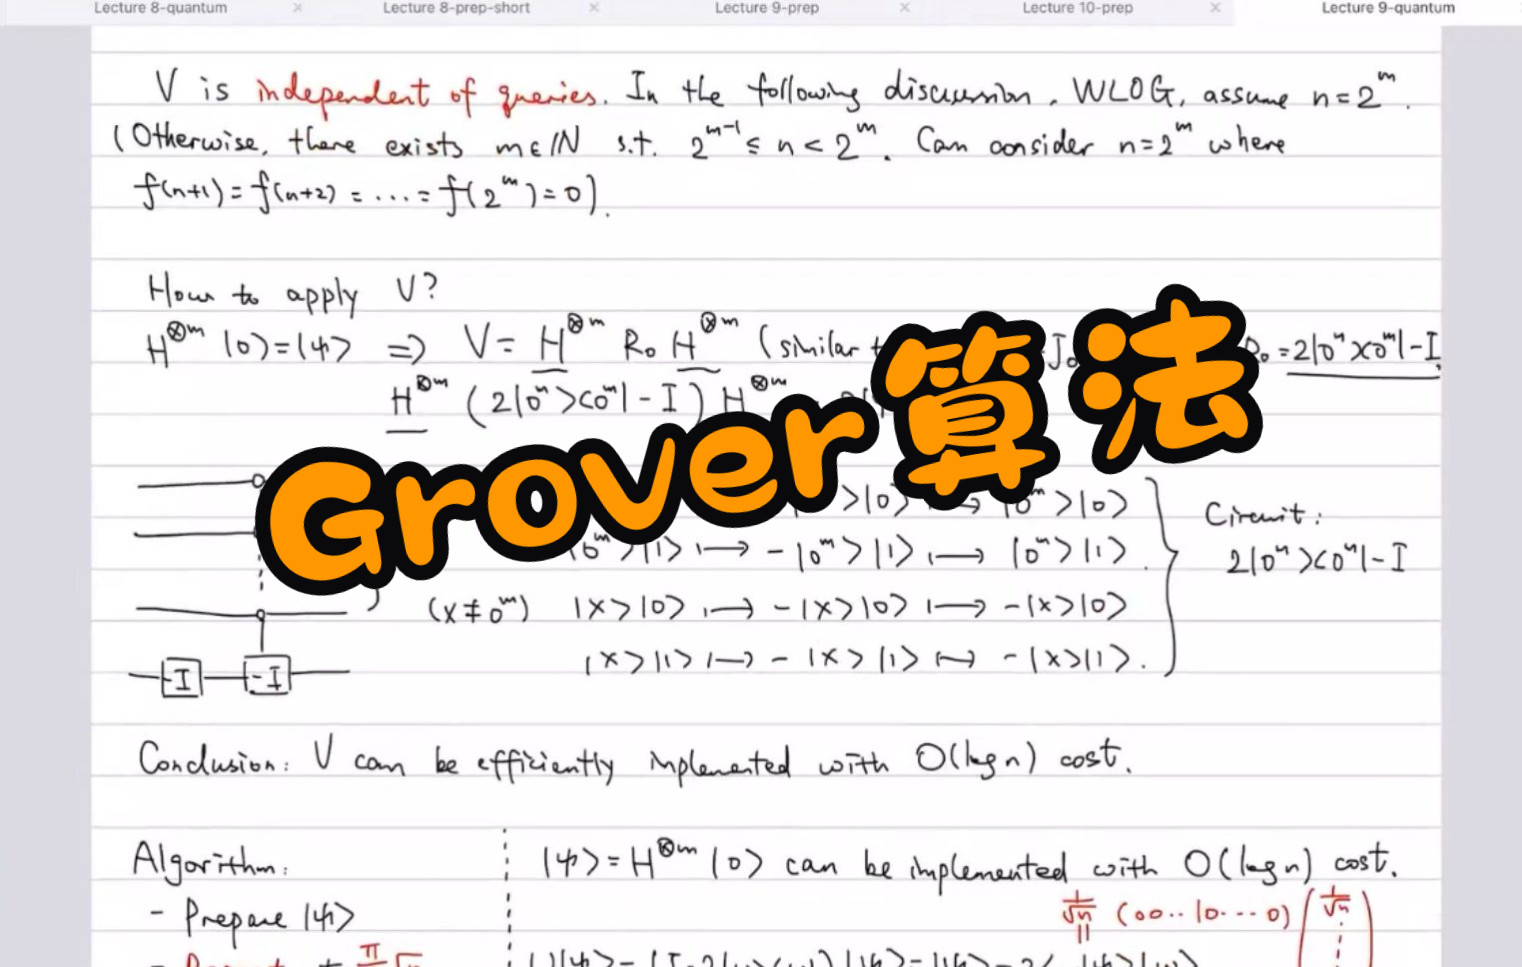 Lecture 8-quantum Lecture 8-prep-short Lecture 9-prep Lecture 10-prep Lecture 9-quantum
V is independent of queries. In the following discussion, WLOG, assume n=2^m.
(Otherwise, there exists m∈ℕ s.t. 2^{m-1} ≤ n < 2^m. Can consider n=2^m where
f(n+1)=f(n+2)=...=f(2^m)=0).
How to apply V?
H^{⊗m} |0⟩=|ψ⟩ ⇒ V= H^{⊗m} R₀ H^{⊗m} (similar R₀=2|0^m⟩⟨0^m|-I.
H^{⊗m} (2|0^m⟩⟨0^m|-I) H^{⊗m}
Grover算法
⟩|0⟩ → |0^m⟩|0⟩
|0^m⟩|1⟩ ↦ -|0^m⟩|1⟩ ↦ |0^m⟩|1⟩.
(x≠0^m) |x⟩|0⟩ ↦ -|x⟩|0⟩ ↦ -|x⟩|0⟩
|x⟩|1⟩ ↦ -|x⟩|1⟩ ↦ -|x⟩|1⟩.
Circuit:
2|0^m⟩⟨0^m|-I
-I -I
Conclusion: V can be efficiently implemented with O(log n) cost.
Algorithm:
- Prepare |ψ⟩
|ψ⟩=H^{⊗m} |0⟩ can be implemented with O(log n) cost.
1/√n (00..10...0) (1/√n)